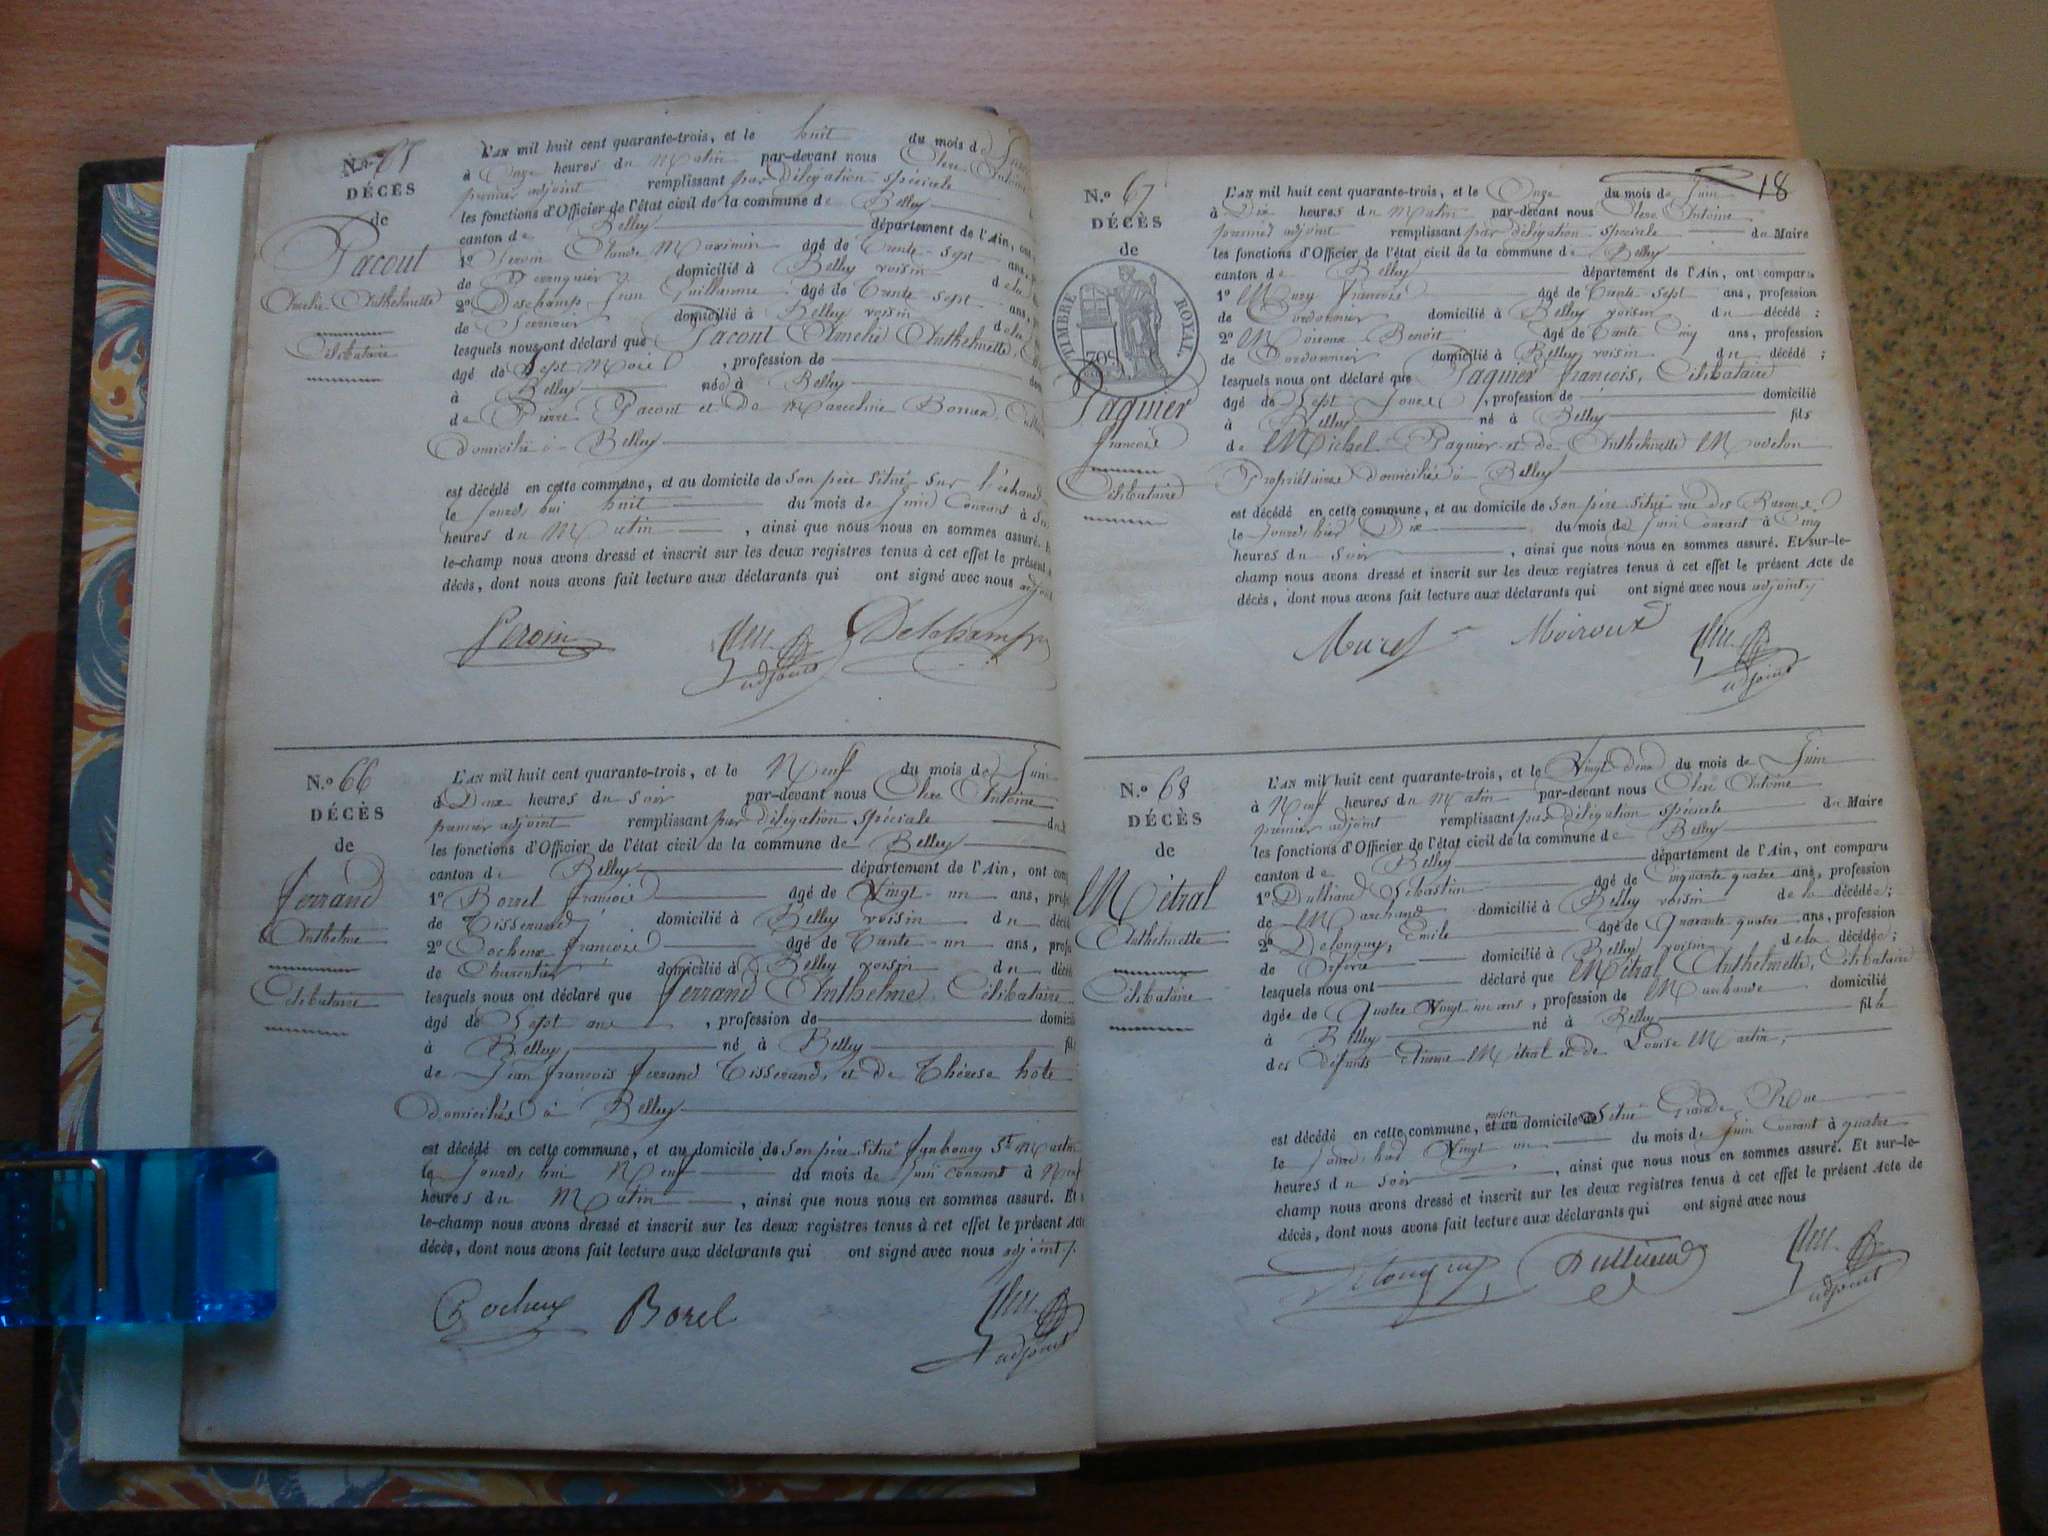 N.o 65
DÉCÈS
de
Pacout
Amélie Anthelmette
Célibataire
L'AN mil huit cent quarante-trois, et le huit du mois de
à Onze heures du Matin par-devant nous
premier adjoint remplissant par délégation spéciale
les fonctions d'Officier de l'état civil de la commune de Belley
canton de Belley département de l'Ain, ont
1o Claude Maximin agé de trente-sept ans,
de domicilié à Belley voisin de la
2o Deschamps Jean Guillaume agé de trente sept ans,
de Serrurier domicilié à Belley voisin de la
lesquels nous ont déclaré que Pacout Amélie Anthelmette,
agé de Sept Mois , profession de
à Belley née à Belley
de Pierre Pacout et de Marceline
domicilié à Belley
est décédé en cette commune, et au domicile de son père situé sur
le jourd'hui huit du mois de juin courant à
heures du Matin , ainsi que nous nous en sommes assuré.
le-champ nous avons dressé et inscrit sur les deux registres tenus à cet effet le présent
décès, dont nous avons fait lecture aux déclarants qui ont signé avec nous adjoint
adjoint Deschamps
N.o 66
DÉCÈS
de
ferrand
Anthelme
Célibataire
L'AN mil huit cent quarante-trois, et le Neuf du mois de Juin
à Deux heures du soir par-devant nous Antoine
premier adjoint remplissant par délégation spéciale
les fonctions d'Officier de l'état civil de la commune de Belley
canton de Belley département de l'Ain, ont
1o Borel françois agé de Vingt-un ans,
de Tisserand domicilié à Belley voisin du
2o Cocheux françois agé de trente-un ans,
de Charpentier domicilié à Belley voisin du
lesquels nous ont déclaré que ferrand Anthelme, Célibataire
agé de Sept ans , profession de
à Belley né à Belley
de Jean françois ferrand Tisserand, et de Thérèse hote
domiciliés à Belley
est décédé en cette commune, et au domicile de son père situé faubourg St Martin
le jourd'hui Neuf du mois de juin courant à
heures du Matin , ainsi que nous nous en sommes assuré. Et
le-champ nous avons dressé et inscrit sur les deux registres tenus à cet effet le présent Acte
décès, dont nous avons fait lecture aux déclarants qui ont signé avec nous adjoint
Cocheux Borel
adjoint
18
N.o 67
DÉCÈS
de
TIMBRE ROYAL.
70c
Paquier
françois
Célibataire
L'AN mil huit cent quarante-trois, et le Onze du mois de Juin
à Dix heures du Matin par-devant nous Antoine
premier adjoint remplissant par délégation spéciale du Maire
les fonctions d'Officier de l'état civil de la commune de Belley
canton de Belley département de l'Ain, ont comparu
1o françois agé de trente sept ans, profession
de Cordonnier domicilié à Belley voisin du décédé ;
2o Moiroux Benoit agé de trente cinq ans, profession
de Cordonnier domicilié à Belley voisin du décédé ;
lesquels nous ont déclaré que Paquier françois, Célibataire
agé de Sept Jours , profession de domicilié
à Belley né à Belley fils
de Michel Paquier et de Anthelmette
Propriétaires domiciliés à Belley
est décédé en cette commune, et au domicile de son père situé rue des
le jourd'hier Dix du mois de juin courant à Cinq
heures du soir , ainsi que nous nous en sommes assuré. Et sur-le-
champ nous avons dressé et inscrit sur les deux registres tenus à cet effet le présent Acte de
décès, dont nous avons fait lecture aux déclarants qui ont signé avec nous adjoint
Moiroux
adjoint
N.o 68
DÉCÈS
de
Métral
Anthelmette
Célibataire
L'AN mil huit cent quarante-trois, et le Vingt-deux du mois de Juin
à Neuf heures du Matin par-devant nous Antoine
premier adjoint remplissant par délégation spéciale du Maire
les fonctions d'Officier de l'état civil de la commune de Belley
canton de Belley département de l'Ain, ont comparu
1o Sébastien agé de Cinquante quatre ans, profession
de Marchand domicilié à Belley voisin de la décédée ;
2o Emile agé de Quarante quatre ans, profession
de domicilié à Belley voisin de la décédée ;
lesquels nous ont déclaré que Métral Anthelmette, Célibataire
agée de Quatre Vingt un ans , profession de Marchande domicilié
à Belley né à Belley fille
des défunts Etienne Métral et de Louise Martin,
est décédé en cette commune, et au domicile situé Grande Rue
le jourd'hier Vingt un du mois de Juin courant à quatre
heures du soir , ainsi que nous nous en sommes assuré. Et sur-le-
champ nous avons dressé et inscrit sur les deux registres tenus à cet effet le présent Acte de
décès, dont nous avons fait lecture aux déclarants qui ont signé avec nous
adjoint